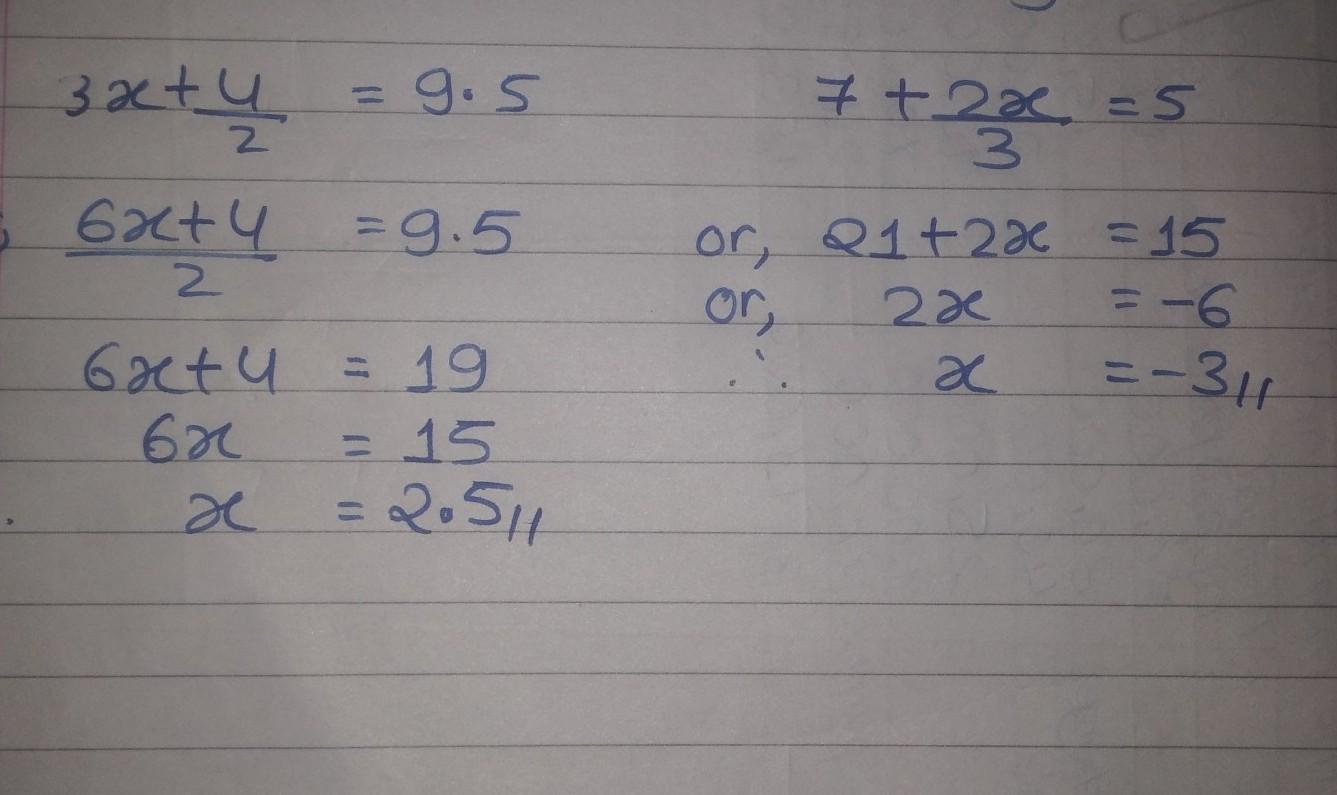 3x + 4/2 = 9.5
(6x+4)/2 = 9.5
6x+4 = 19
6x = 15
x = 2.5//
7 + 2x/3 = 5
or, 21+2x = 15
or, 2x = -6
∴ x = -3//